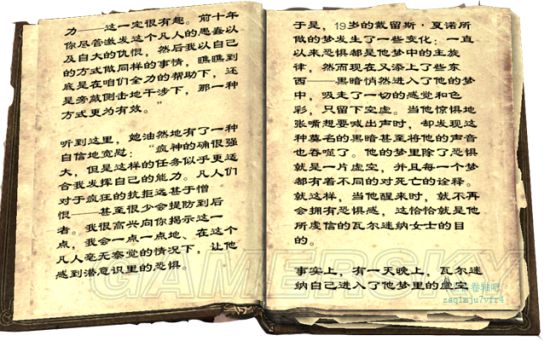 力——这一定很有趣。前十年
你尽管激发这个凡人的愚蠢以
及自大的仇恨，然后我以自己
的方式做同样的事情，瞧瞧到
底是在咱们全力的帮助下，还
是旁敲侧击地干涉下，那一种
方式更为有效。”
听到这里，她油然地有了一种
自信地宽慰：“疯神的确很强
大，但是这样的任务似乎更适
合我发挥自己的能力。凡人们
对于疯狂的抗拒远甚于憎
恨——甚至很少会提防到后
者。我很高兴向你揭示这一
点，我会一点一点地、在这个
凡人毫无察觉的情况下，让他
感到潜意识里的恐惧。
于是，19岁的戴留斯·夏诺所
做的梦发生了一些变化：一直
以来恐惧都是他梦中的主旋
律，然而现在又添上了些东
西——黑暗悄然进入了他的梦
中，吸走了一切的感觉和色
彩，只留下空虚。当他惊惧地
张嘴想要喊出声时，却发现这
种莫名的黑暗甚至将他的声音
也吞噬了。他的梦里除了恐惧
就是一片虚空，并且每一个梦
都有着不同的对死亡的诠释。
就这样，当他醒来时，就不再
会拥有恐惧感，这恰恰就是他
所虔信的瓦尔迷纳女士的目
的。
事实上，有一天晚上，瓦尔迷
纳自己进入了他梦里的虚空
GAMERSKY
卷轴吧